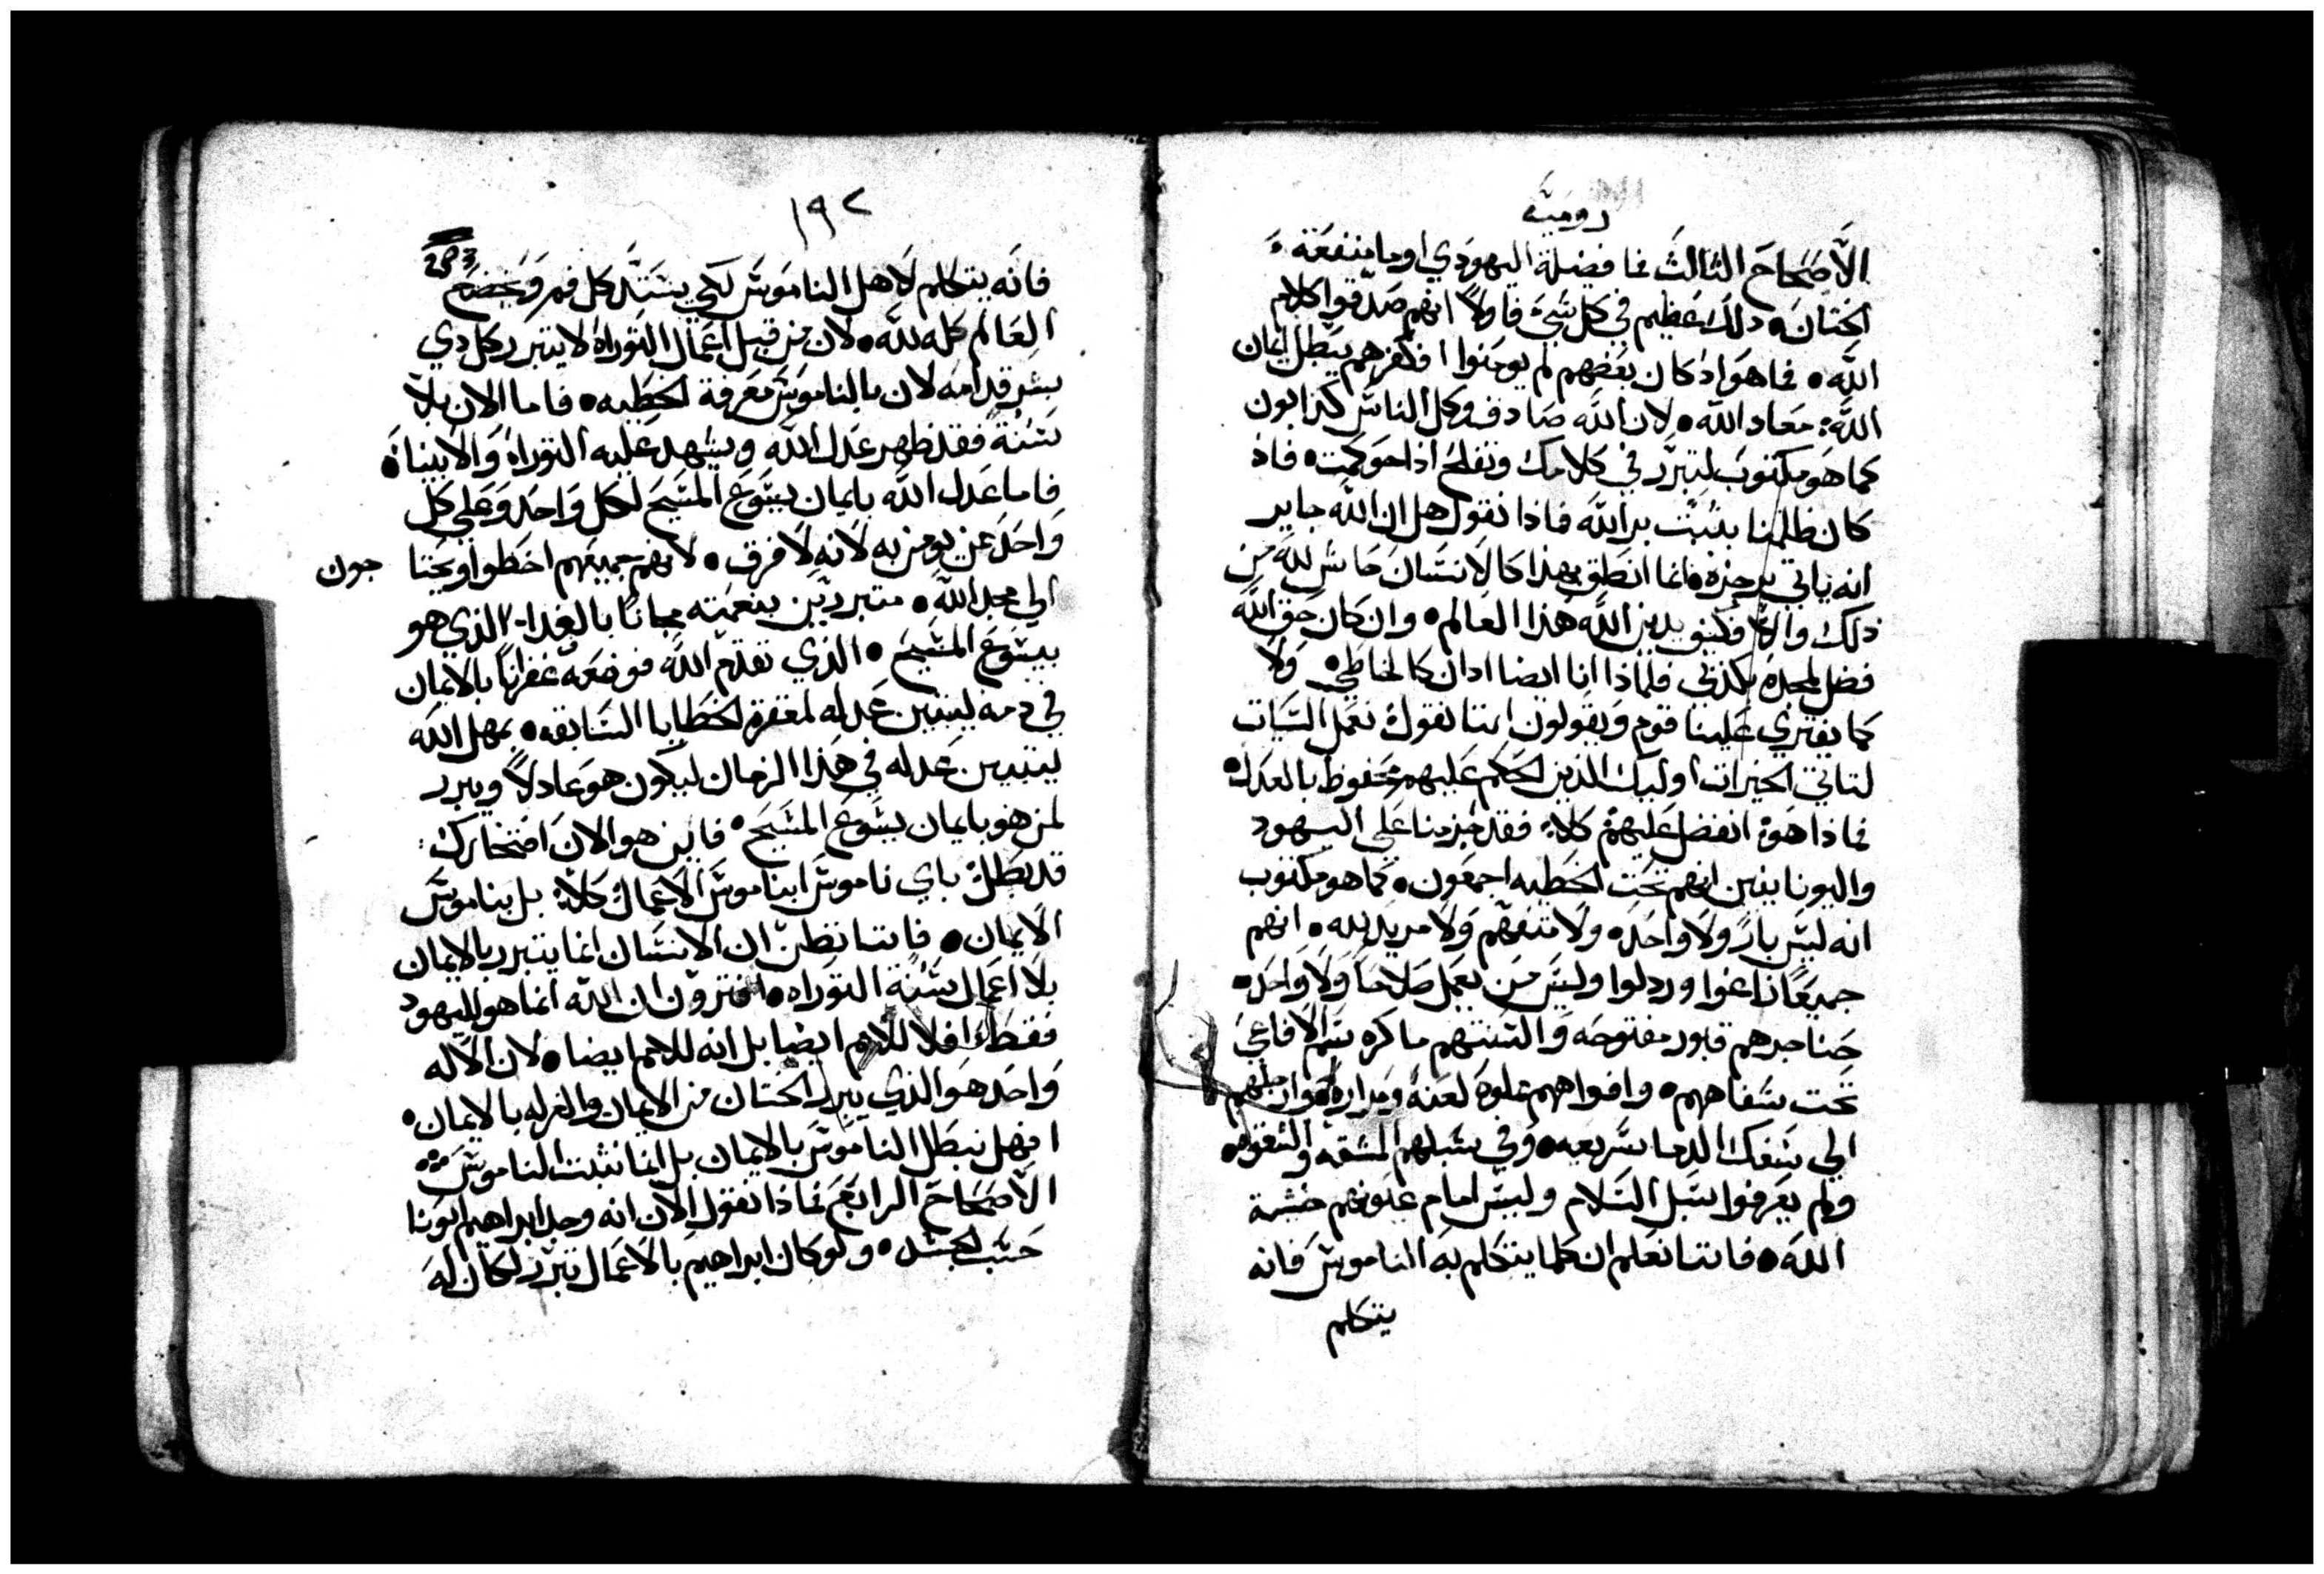 رومية
الأصحاح الثالث فما فضيلة اليهودي اوما منفعة
الختان ذلك عظيم في كل شي فاولاً انهم صدقوا كلام
الله فما هو اذ كان بعضهم لم يومنوا افكفرهم يبطل ايمان
الله معاد الله لان الله صادق وكل الناس كذابون
كما هو مكتوب لتبرر في كلامك وتفلح اذا حوكمت فاذ
كان ظلمنا يثبت بر الله فماذا نقول هل ان الله جاير
انه ياتي برجزه فانما انطق بهذا كالانسان حاش لله من
ذلك والا فكيف يدين الله هذا العالم وان كان حق الله
فضل لمجده بكذبي فلماذا انا ايضا ادان كالخاطي ولا
كما يفتري علينا قوم ويقولون اننا نقول نعمل السيات
لتاتي الخيرات اوليك الذين الحكم عليهم محفوظ بالعدل
فماذا هو انفضل عليهم كلا فقد جزمنا على اليهود
واليونايين انهم تحت الخطيه اجمعون كما هو مكتوب
انه ليس بار ولا واحد ولا متفهم ولا مريد لله انهم
جميعاً زاغوا وردلوا وليس من يعمل صلاحا ولا واحد
حناجرهم قبور مفتوحه والسنتهم ماكره سم الافاعي
تحت شفاههم وافواههم مملوه لعنة ومراره وارجلهم
الي سفك الدما سريعه وفي سبلهم المشقه والشقوه
ولم يعرفوا سبل السلام وليس امام عيونهم خشية
الله فاننا نعلم ان كلما يتكلم به الناموس فانه
يتكلم
١٩٢
203
فانه يتكلم لاهل الناموس لكي يستد كل فم ويخضع
العالم كله لله لان من قبل اعمال التوراه لا يتبرر كل دي
بشر قدامه لان بالناموس معرفة الخطيه فاما الان بلا
سنة فقد ظهر عدل الله ويشهد عليه التوراه والانبياء
فاما عدل الله بايمان يسوع المسيح لكل واحد وعلى كل
واحد ممن يومن به لانه لا فرق لانهم جميعهم اخطوا ويحتا جون
الي مجد الله متبررين بنعمته مجانا بالفدا الذي هو
بيسوع المسيح الذي تقدم الله فوضعه غفرانا بالايمان
في دمه ليتبين عدله لمغفرة الخطايا السابقه بمهل الله
ليتبين عدله في هذا الزمان ليكون هو عادلاً ويبرر
لمن هو بايمان يسوع المسيح فاين هو الان افتخارك
قد بطل باي ناموس ابناموس الاعمال كلا بل بناموس
الايمان فاننا نظن ان الانسان انما يتبرر بالايمان
بلا اعمال سنة التوراه افترون ان الله انما هو لليهود
فقط افلا للامم ايضا بل انه للامم ايضا لان الاله
واحد هو الذي يبرر الختان من الايمان والغرله بالايمان
افهل نبطل الناموس بالايمان بل انما نثبت الناموس
الأصحاح الرابع فماذا نقول الان انه وجد ابراهيم ابونا
حسب الجسد ولو كان ابراهيم بالاعمال تبرر لكان له